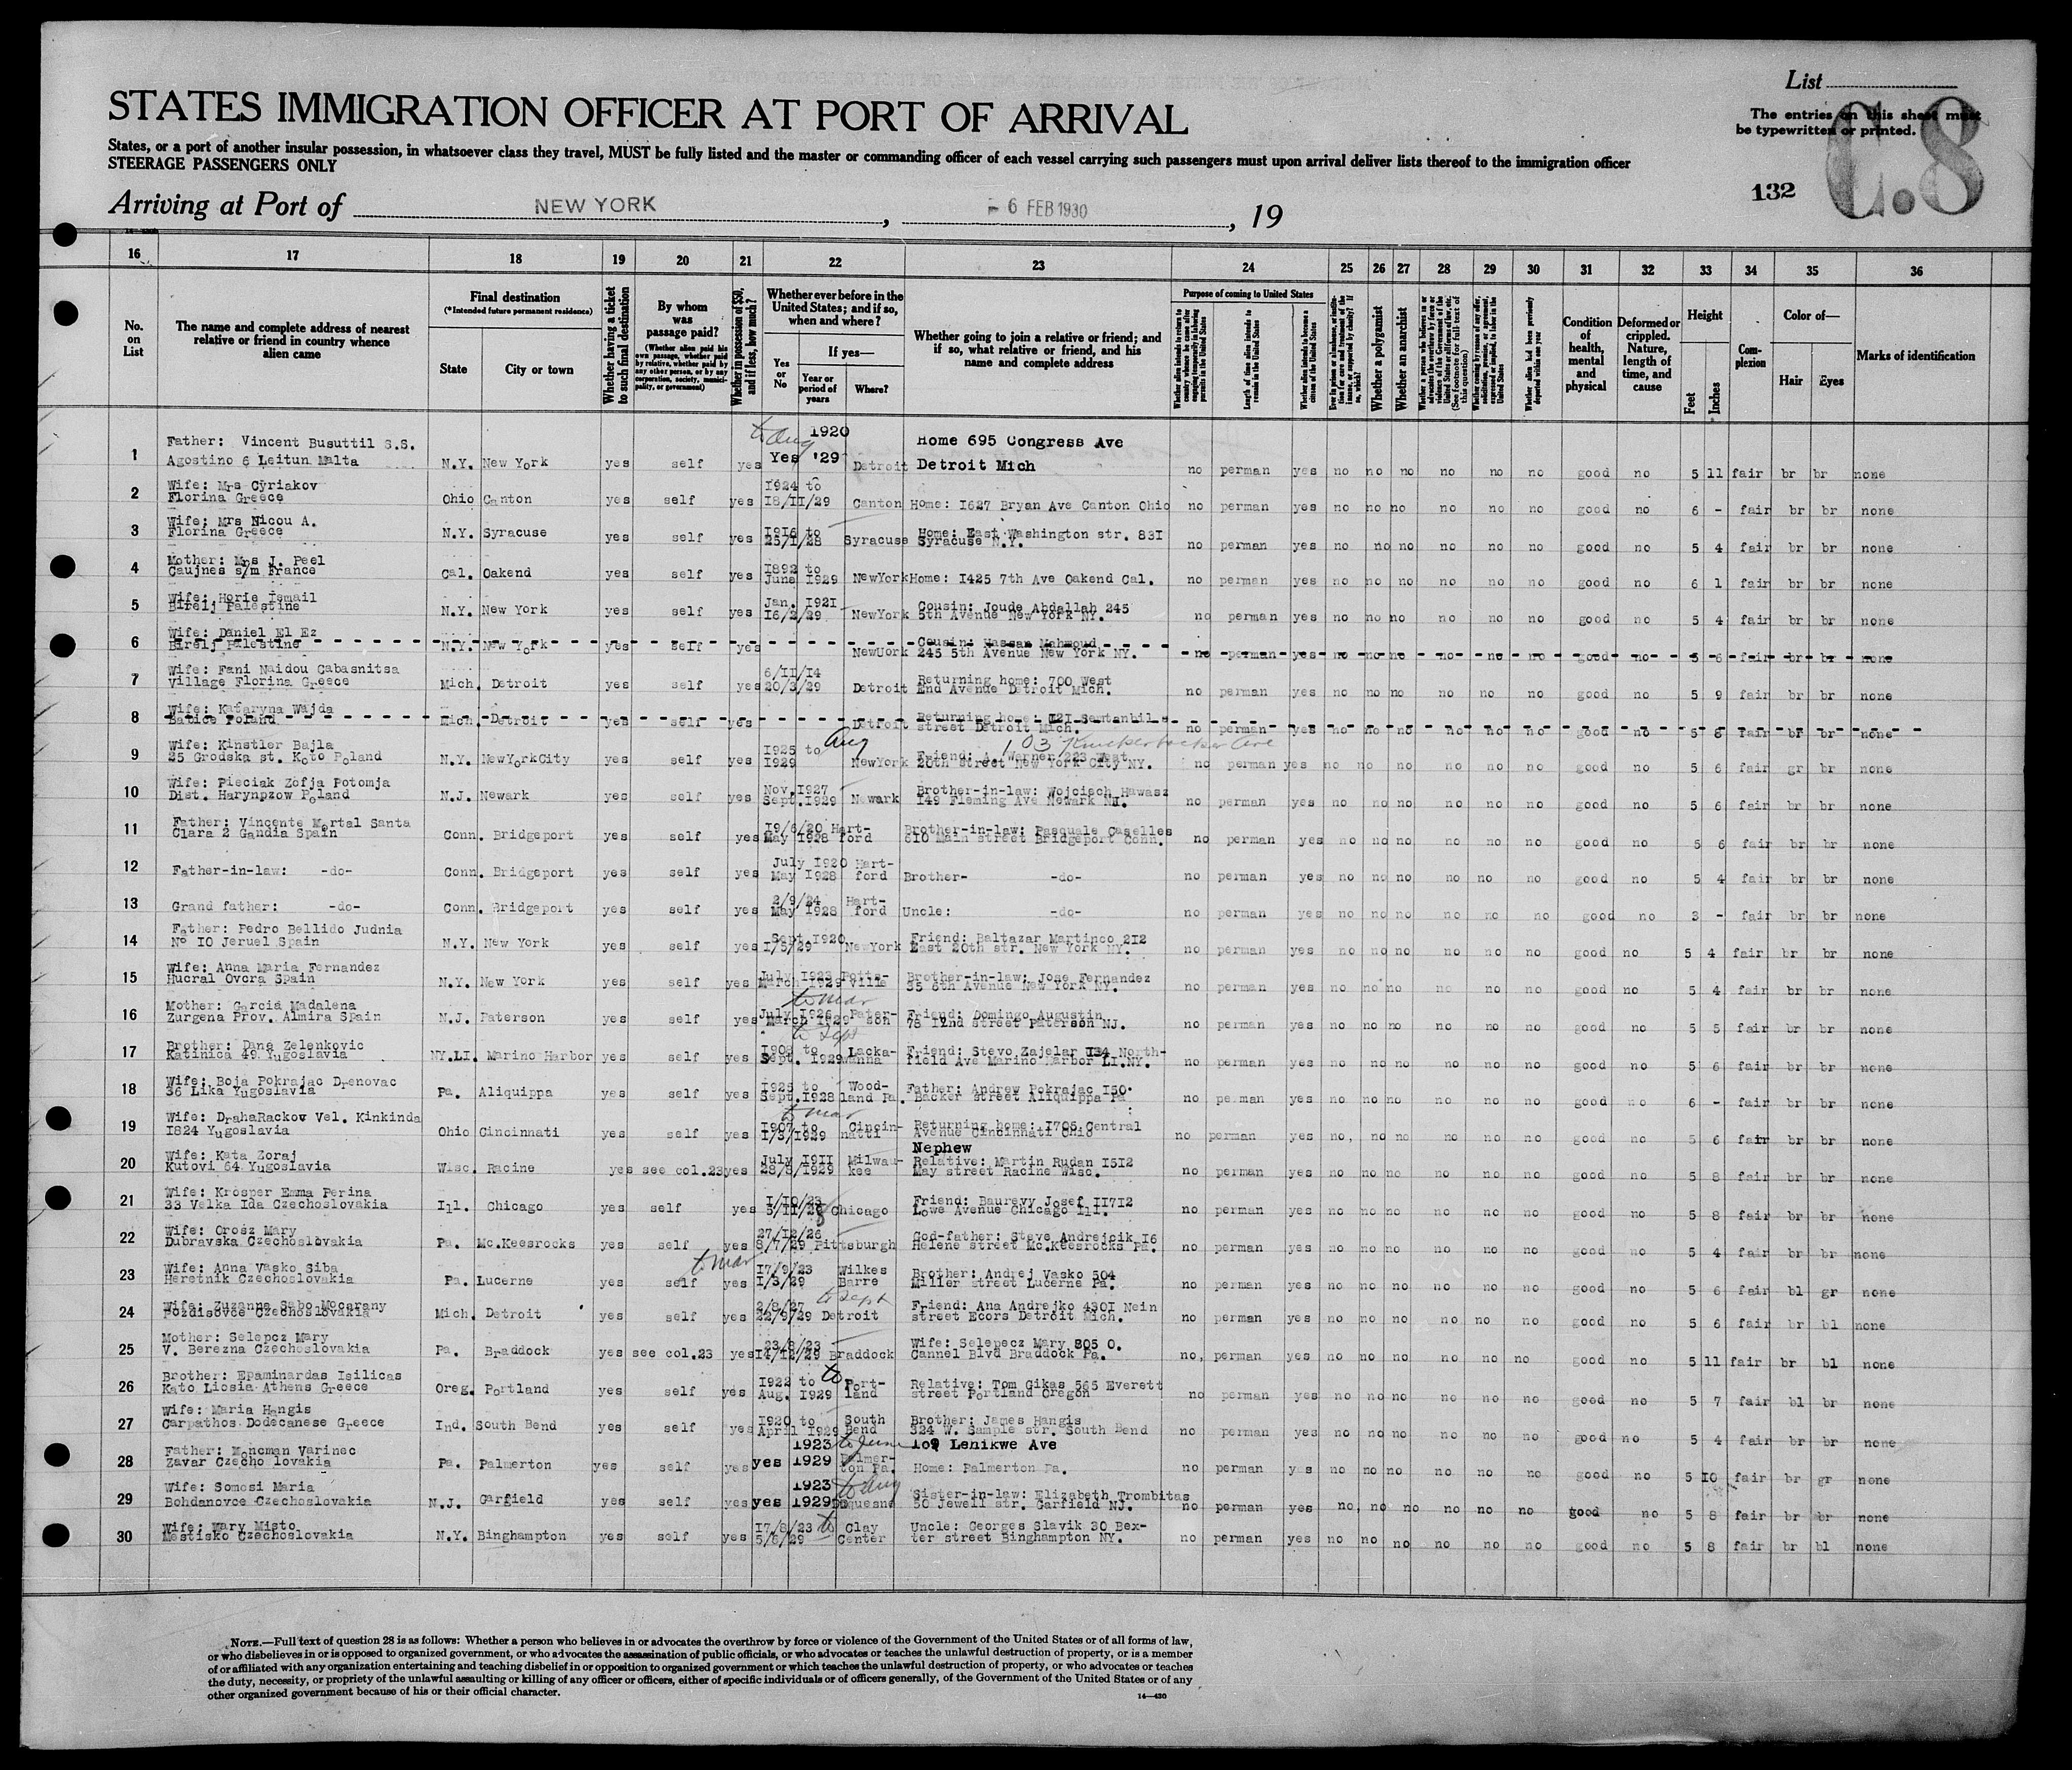 List
STATES IMMIGRATION OFFICER AT PORT OF ARRIVAL
The entries on this sheet must
be typewritten or printed.
C.8
States, or a port of another insular possession, in whatsoever class they travel, MUST be fully listed and the master or commanding officer of each vessel carrying such passengers must upon arrival deliver lists thereof to the immigration officer
STEERAGE PASSENGERS ONLY
132
Arriving at Port of NEW YORK , 6 FEB 1930 , 19
16 17 18 19 20 21 22 23 24 25 26 27 28 29 30 31 32 33 34 35 36
No. on List
The name and complete address of nearest relative or friend in country whence alien came
Final destination
(*Intended future permanent residence)
State
City or town
Whether having a ticket to such final destination
By whom was passage paid?
(Whether alien paid his own passage, whether paid by relative, whether paid by any other person, or by any corporation, society, municipality, or government)
Whether in possession of $50, and if less, how much?
Whether ever before in the United States; and if so, when and where?
Yes or No
If yes—
Year or period of years
Where?
Whether going to join a relative or friend; and if so, what relative or friend, and his name and complete address
Purpose of coming to United States
Length of time alien intends to remain in the United States
Whether alien intends to become a citizen of the United States
Whether a polygamist
Whether an anarchist
Condition of health, mental and physical
Deformed or crippled. Nature, length of time, and cause
Height
Feet
Inches
Complexion
Color of—
Hair
Eyes
Marks of identification
1 Father: Vincent Busuttil S.S. to Aug 1920 Home 695 Congress Ave
Agostino 6 Leitun Malta N.Y. New York yes self yes Yes '29 Detroit Detroit Mich no perman yes no no no no no no good no 5 11 fair br br none
2 Wife: Mrs Cyriakov 1924 to
Florina Greece Ohio Canton yes self yes 18/11/29 Canton Home: 1627 Bryan Ave Canton Ohio no perman yes no no no no no no good no 6 - fair br br none
3 Wife: Mrs Nicou A. 1916 to Home: East Washington str. 831
Florina Greece N.Y. Syracuse yes self yes 25/1/28 Syracuse Syracuse N.Y. no perman yes no no no no no no good no 5 4 fair br br none
4 Mother: Mrs J. Peel 1892 to
Caujnes s/m France Cal. Oakend yes self yes June 1929 NewYork Home: 1425 7th Ave Oakend Cal. no perman yes no no no no no no good no 6 1 fair br br none
5 Wife: Horie Ismail Jan. 1921 Cousin: Joude Abdallah 245
Birelj Palestine N.Y. New York yes self yes 16/2/29 NewYork 5th Avenue New York NY. no perman yes no no no no no no good no 5 4 fair br br none
6 Wife: Daniel El Ez Cousin: Hassan Mahmoud
Birelj Palestine N.Y. New York yes self yes NewUork 245 5th Avenue New York NY. no perman yes no no no no no no good no 5 6 fair br br none
7 Wife: Fani Naidou Cabasnitsa 6/11/14 Returning home: 700 West
Village Florina Greece Mich. Detroit yes self yes 20/3/29 Detroit End Avenue Detroit Mich. no perman yes no no no no no no good no 5 9 fair br br none
8 Wife: Kataryna Wajda Returning home: 121
Babice Poland Mich. Detroit yes self yes Detroit street Detroit Mich. no perman yes no no no no no no good no 5 8 fair br br none
9 Wife: Kinstler Bajla 1925 to Aug 103 Knickerbocker Ave Friend: A. Warner 223 West
25 Grodska st. Koto Poland N.Y. NewYorkCity yes self yes 1929 NewYork 20th street New York City NY. no perman yes no no no no no no good no 5 6 fair gr br none
10 Wife: Pieciak Zofja Potomja Nov. 1927 Brother-in-law: Wojciech Hawasz
Dist. Harynpzow Poland N.J. Newark yes self yes Sept. 1929 Newark 149 Fleming Ave Newark NJ. no perman yes no no no no no no good no 5 6 fair br br none
11 Father: Vincente Mortal Santa 19/6/20 Hart- Brother-in-law: Pasquale Caselles
Clara 2 Gandia Spain Conn. Bridgeport yes self yes May 1928 ford 610 Main street Bridgeport Conn. no perman yes no no no no no no good no 5 6 fair br br none
12 July 1920 Hart-
Father-in-law: -do- Conn. Bridgeport yes self yes May 1928 ford Brother- -do- no perman yes no no no no no no good no 5 4 fair br br none
13 2/9/24 Hart-
Grand father: -do- Conn. Bridgeport yes self yes May 1928 ford Uncle: -do- no perman yes no no no no no no good no 3 - fair br br none
14 Father: Pedro Bellido Judnia Sept 1920 Friend: Baltazar Martinco 212
No 10 Jeruel Spain N.Y. New York yes self yes 1/5/29 NewYork East 20th str. New York NY. no perman yes no no no no no no good no 5 4 fair br br none
15 Wife: Anna Maria Fernandez July 1923 Potts- Brother-in-law: Jose Fernandez
Hucral Overa Spain N.Y. New York yes self yes March 1929 ville 35 6th Avenue New York NY. no perman yes no no no no no no good no 5 4 fair br br none
16 Mother: Garcia Madalena to Mar July 1926 Pater- Friend: Domingo Augustin
Zurgena Prov. Almira Spain N.J. Paterson yes self yes March 1929 son 78 12nd street Paterson NJ. no perman yes no no no no no no good no 5 5 fair br br none
17 Brother: Dana Zelenkovic to Sept 1908 to Lacka- Friend: Stevo Zajelar 134 North-
Katinica 49 Yugoslavia NY.LI. Marino Harbor yes self yes Sept. 1929 wanna field Ave Marino Harbor LI.NY. no perman yes no no no no no no good no 5 6 fair br br none
18 Wife: Boja Pokrajac Drenovac 1925 to Wood- Father: Andrew Pokrajac 150
36 Lika Yugoslavia Pa. Aliquippa yes self yes Sept. 1928 land Pa. Backer street Aliquippa Pa no perman yes no no no no no no good no 6 - fair br br none
19 Wife: DrahaRackov Vel. Kinkinda to Mar 1907 to Cincin- Returning home: 1706 Central
1824 Yugoslavia Ohio Cincinnati yes self yes 1/3/1929 natti Avenue Cincinnati Ohio no perman yes no, no no no no no good no 5 6 fair br br none
Nephew
20 Wife: Kata Zoraj July 1911 Milwau- Relative: Martin Rudan 1512
Kutovi 64 Yugoslavia Wisc. Racine yes see col.23 yes 28/8/1929 kee May street Racine Wisc. no perman yes no no no no no no good no 5 8 fair br br none
21 Wife: Krosper Emma Perina 1/10/23 Friend: Baurevy Josef 11712
33 Velka Ida Czechoslovakia Ill. Chicago yes self yes Chicago Lowe Avenue Chicago Ill. no perman yes no no no no no no good no 5 8 fair br br none
22 Wife: Orosz Mary 27/12/26 God-father: Steve Andrejcik 16
Dubravska Czechoslovakia Pa. Mc.Keesrocks yes self yes 8/7/29 Pittsburgh Helene street Mc.Keesrocks Pa. no perman yes no no no no no no good no 5 4 fair br br none
23 Wife: Anna Vasko Siba to Mar 17/9/23 Wilkes Brother: Andrej Vasko 504
Heretnik Czechoslovakia Pa. Lucerne yes self yes 1/3/29 Barre Miller street Lucerne Pa. no perman yes no no no no no no good no 5 6 fair bl gr none
24 Wife: Zuzanna Sabo Mocarany 2/8/27 to Sept Friend: Ana Andrejko 4301 Nein
Pozdisovce Czechoslovakia Mich. Detroit yes self yes 22/9/29 Detroit street Ecors Detroit Mich. no perman yes no no no no no no good no 5 6 fair br bl none
25 Mother: Selepcz Mary 23/8/23 Wife: Selepecz Mary 805 O.
V. Berezna Czechoslovakia Pa. Braddock yes see col.23 yes 14/12/29 Braddock Cannel Blvd Braddock Pa. no, perman yes no no no no no no good no 5 11 fair br bl none
26 Brother: Epaminardas Isilicas 1922 to to Port- Relative: Tom Gikas 565 Everett
Kato Liosia Athens Greece Oreg. Portland yes self yes Aug. 1929 land street Portland Oregon no perman yes no no no no no no good no 5 7 fair bl br none
27 Wife: Maria Hangis 1920 to South Brother: James Hangis
Carpathos Dodecanese Greece Ind. South Bend yes self yes April 1929 Bend 324 W. Sample str. South Bend no perman yes no no no no no no good no 5 4 fair br br none
28 Father: Moncman Varinec 1923 to June 109 Lehikwe Ave
Zavar Czecho lovakia Pa. Palmerton yes self yes yes 1929 Palmer-ton Pa. Home: Palmerton Pa. no perman yes no no no no no no good no 5 10 fair br gr none
29 Wife: Somosi Maria 1923 to Aug Sister-in-law: Elizabeth Trombitas
Bohdanovce Czechoslovakia N.J. Garfield yes self yes yes 1929 Duquesne 50 Jewell str. Garfield NJ. no perman yes no, no no no no no good no 5 8 fair br br none
30 Wife: Mary Misto 17/8/23 to Clay Uncle: Georges Slavik 30 Bex-
Mestisko Czechoslovakia N.Y. Binghampton yes self yes 5/8/29 Center ter street Binghampton NY. no perman yes no no no no no no good no 5 8 fair br bl none
NOTE.—Full text of question 28 is as follows: Whether a person who believes in or advocates the overthrow by force or violence of the Government of the United States or of all forms of law,
or who disbelieves in or is opposed to organized government, or who advocates the assassination of public officials, or who advocates or teaches the unlawful destruction of property, or is a member
of or affiliated with any organization entertaining and teaching disbelief in or opposition to organized government or which teaches the unlawful destruction of property, or who advocates or teaches
the duty, necessity, or propriety of the unlawful assaulting or killing of any officer or officers, either of specific individuals or of officers generally, of the Government of the United States or of any
other organized government because of his or their official character.
14—430